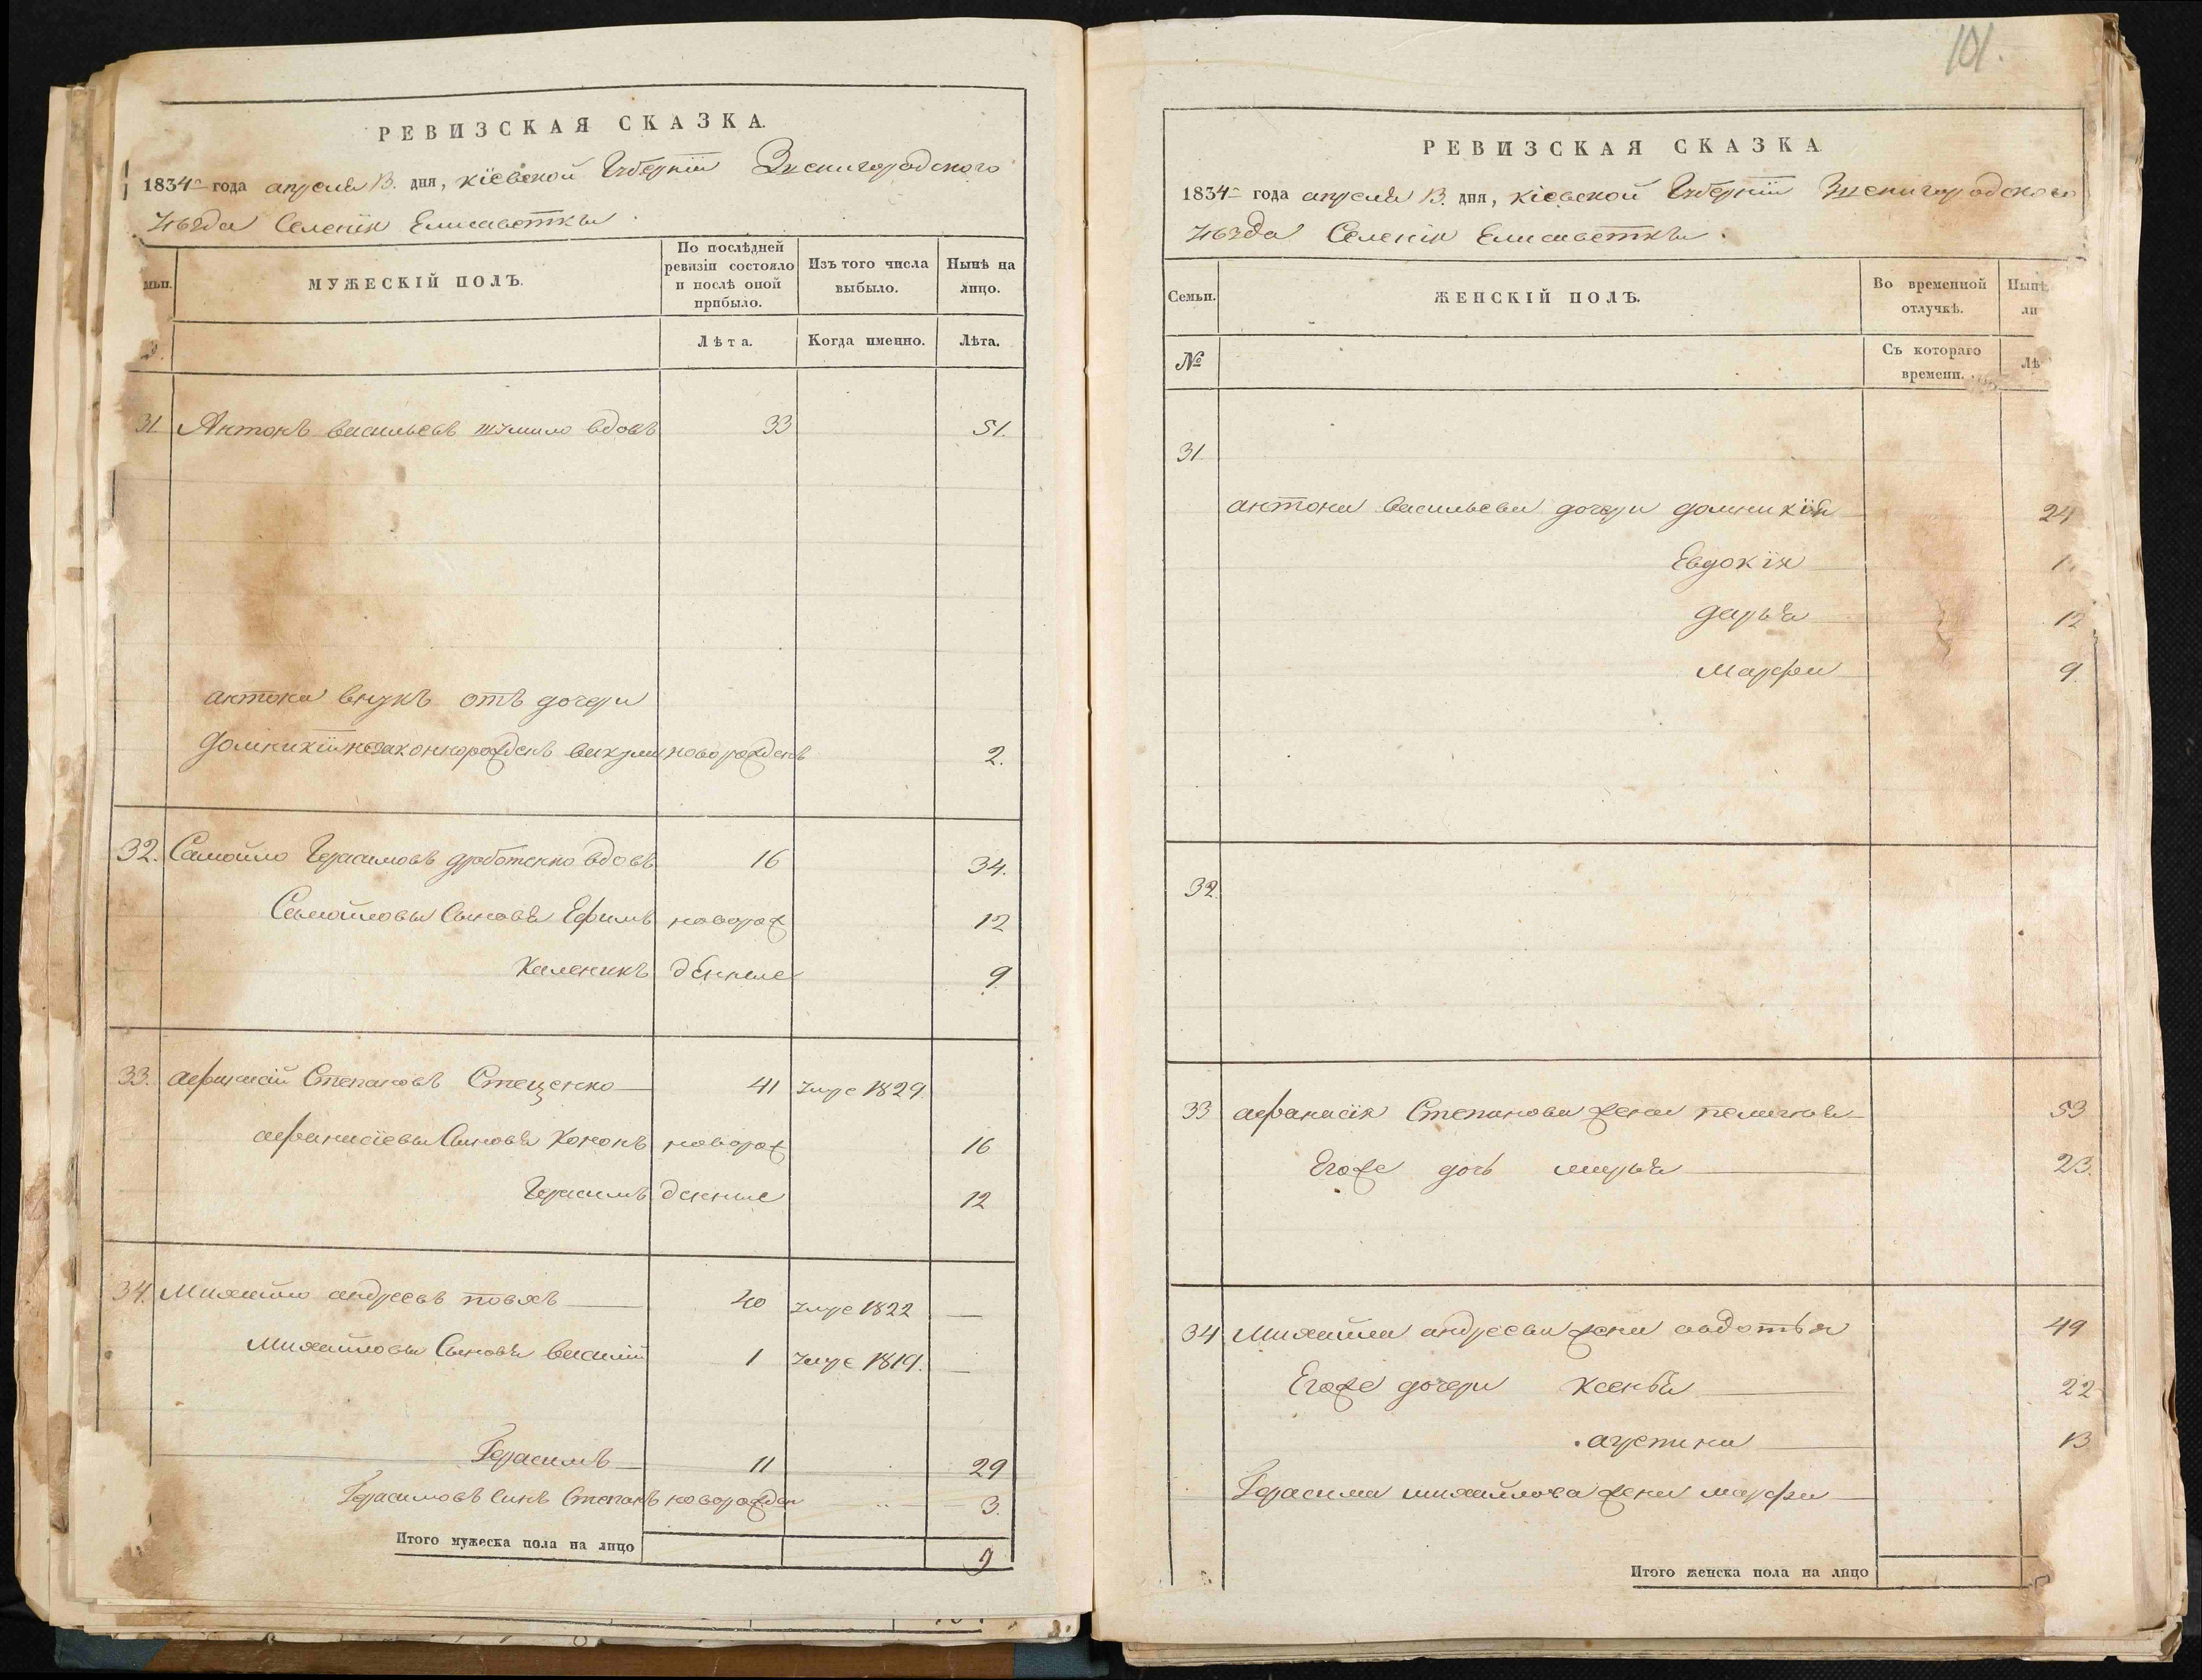 РЕВИЗСКАЯ СКАЗКА.
1834 года апреля 13. дня, кіевской Губерніи Звенигородского
уезда Селенія Елисаветки.
МУЖЕСКІЙ ПОЛЪ.
По послѣдней ревизіи состояло и послѣ оной прибыло.
Изъ того числа выбыло.
Нынѣ на лицо.
Лѣта.
Когда именно.
Лѣта.
31. Антонъ васильевъ вдовъ 33 51.
антона внукъ отъ дочери
домникіи незаконнорожденъ новорожденъ 2.
32. Самойло Герасимовъ дроботенко вдовъ 16 34.
Самойловы Сыновья Ефимъ новорож 12
Каленикъ денные 9.
33. афанасій Степановъ Стеценко 41 умре 1829
афанасіевы Сыновья Кононъ новорож 16
Герасимъ денные 12
34. Михайло андреевъ повхъ 40 умре 1822 —
Михайловы Сыновья василій 1 умре 1819. —
Герасимъ 11 29
Герасимовъ Синъ Степанъ новорожден 3.
Итого мужеска пола на лицо 9
101.
РЕВИЗСКАЯ СКАЗКА
1834 года апреля 13. дня, кіевской Губерніи Звенигородского
уезда Селенія Елисаветки.
Семьи.
ЖЕНСКІЙ ПОЛЪ.
Во временной отлучкѣ.
Нынѣ
№
Съ котораго времени.
31
антона васильева дочери домникія 24
Евдокія
дарья 12
Марфа 9.
32
33 афанасія Степанова жена пелагея 53
Егоже дочь марья 23.
34 Михайла андреева жена авдотья 49
Егоже дочери Ксенья 22
агрепина 13
Герасима михайлова жена марфа
Итого женска пола на лицо